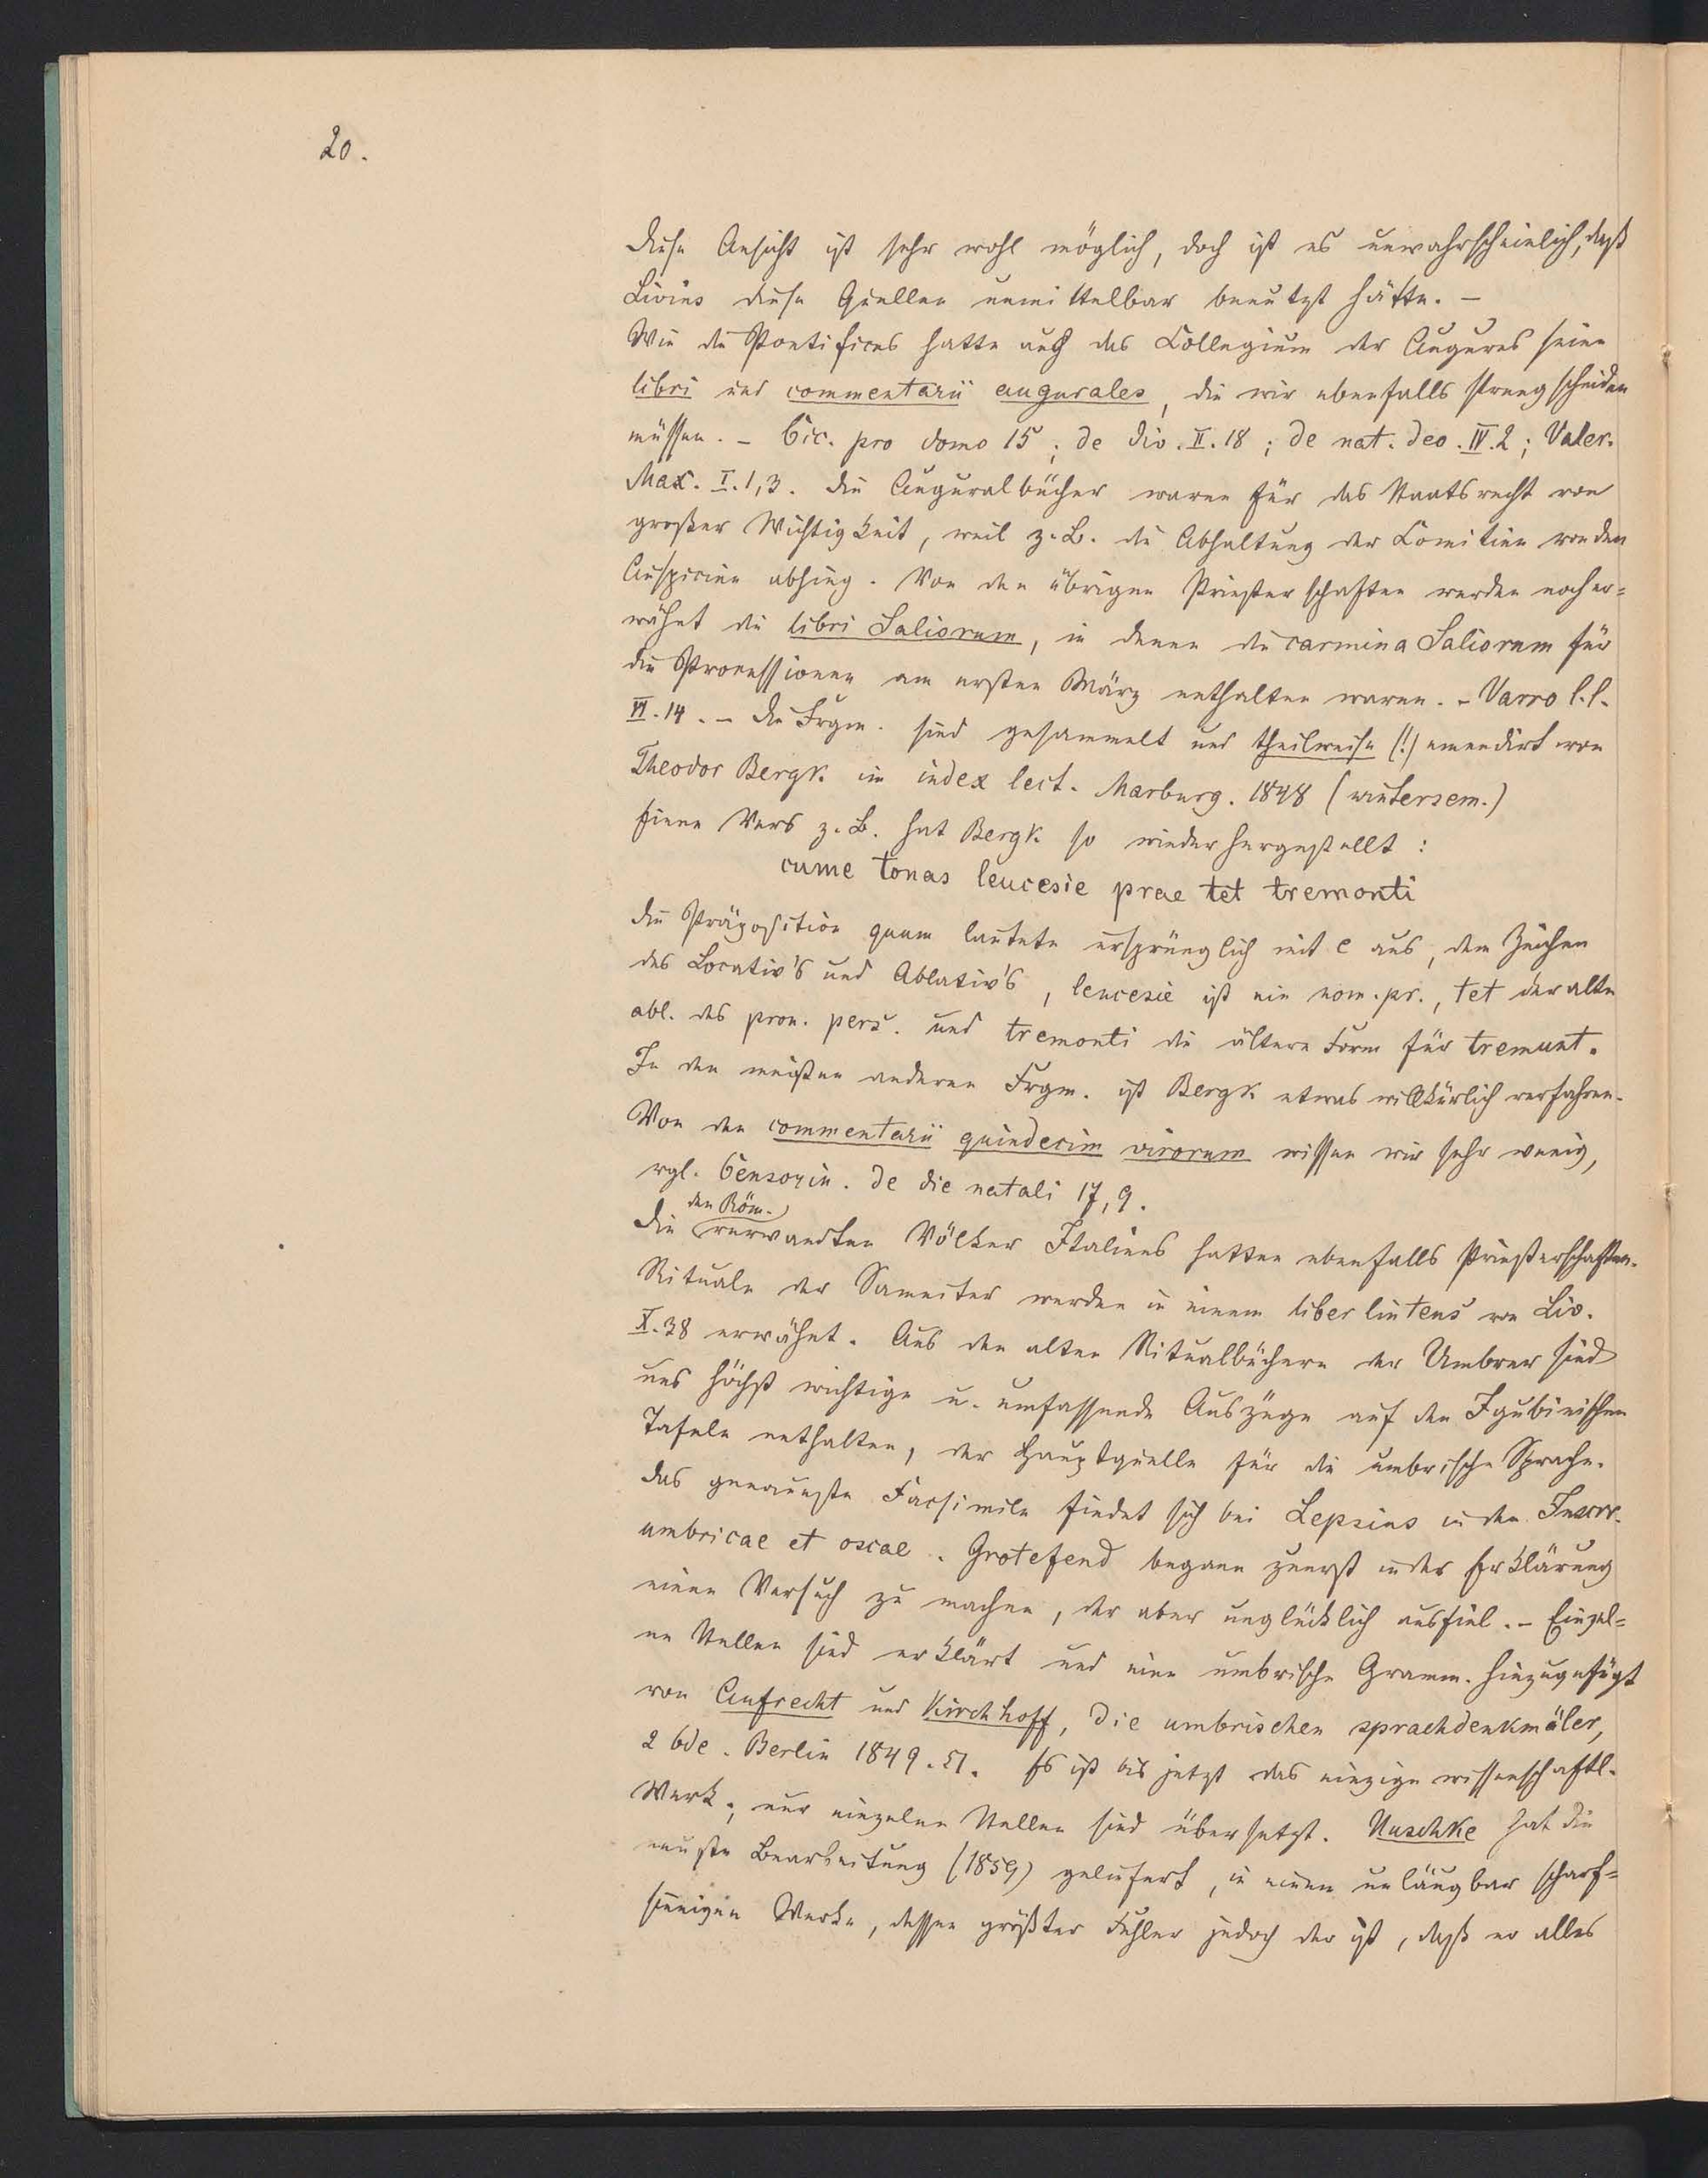 20.
Diese Ansicht ist sehr wohl möglich, doch ist es unwahrscheinlich, daß
Livius diese Quellen unmittelbar benutzt hätte. –
Wie die Pontifices hatte auch das Collegium der Augures seine
libri und commentarii augurales, die wir ebenfalls streng scheiden
müssen. – Cic. pro domo 15; de div. II. 18; de nat. deo. IV. 2; Valer.
Max. I. 1, 3. Die Auguralbücher waren für das Staatsrecht von
großer Wichtigkeit, weil z. B. die Abhaltung der Comitien von den
Auspicien abhing. Von den übrigen Priesterschaften werden noch er=
wähnt die libri Saliorum, in denen die carmina Saliorum für
die Processionen am ersten März enthalten waren. – Varro l. l.
VI. 14. – Die Frgm. sind gesammelt und theilweise (!) emendirt von
Theodor Bergk im index lect. Marburg. 1848 (wintersem.)
Einen Vers z. B. hat Bergk so wiederhergestellt:
cume tonas leucesie prae tet tremonti
Die Präposition quum lautete ursprünglich mit e aus, dem Zeichen
des Locativ's und Ablativ's, leucesie ist ein nom. pr., tet der alte
abl. des pron. pers. und tremonti die ältere Form für tremunt.
In den meisten anderen Frgm. ist Bergk etwas willkürlich verfahren.
Von den commentarii quindecim virorum wissen wir sehr wenig,
vgl. Censorin. de die natali 17, 9.
den Röm.
Die verwandten Völker Italiens hatten ebenfalls Priesterschaften.
Rituale der Samniter werden in einem liber linteus von Liv.
X. 38 erwähnt. Aus den alten Ritualbüchern der Umbrer sind
uns höchst wichtige u. umfassende Auszüge auf den Igubinischen
Tafeln enthalten, der Hauptquelle für die umbrische Sprache.
Das genaueste Facsimile findet sich bei Lepsius in den Inscrr.
umbricae et oscae. Grotefend begann zuerst in der Erklärung
einen Versuch zu machen, der aber unglücklich ausfiel. – Einzel=
ne Stellen sind erklärt und eine umbrische Gramm. hinzugefügt
von Aufrecht und Kirchhoff, die umbrischen sprachdenkmäler,
2 bde. Berlin 1849. 51. Es ist bis jetzt das einzige wissenschaftl.
Werk; nur einzelne Stellen sind übersetzt. Huschke hat die
neuste Bearbeitung (1859) geliefert, in einem unläugbar scharf=
sinnigen Werke, dessen größter Fehler jedoch der ist, daß er alles